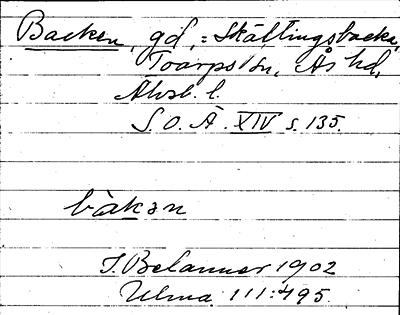 Backen, gd, = Skällingsbacka,
Toarps sn, Ås hd,
Älvsb. l.
S. O. Ä. XIV s. 135.
bàkən
J. Belanner 1902
Ulma 111:495.